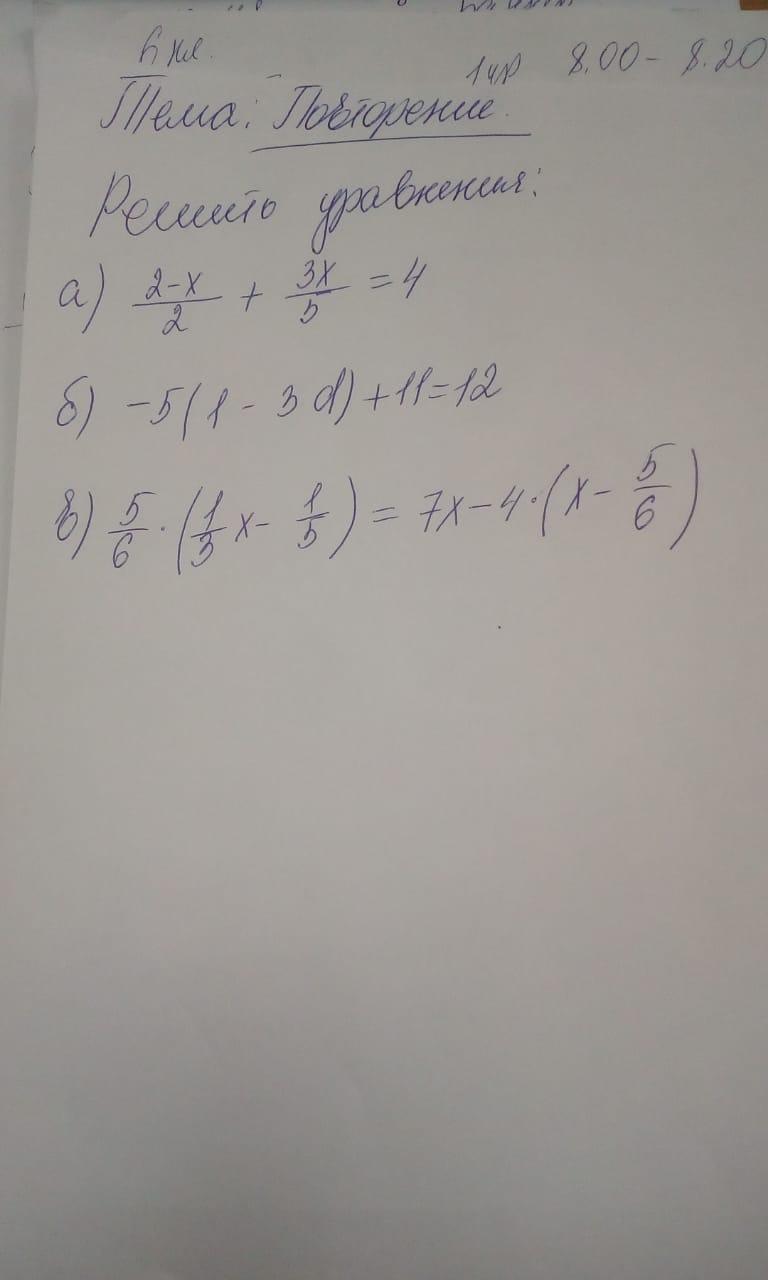 6 кл.
1 ур 8.00 - 8.20
Тема: Повторение.
Решить уравнения:
а) (2-x)/2 + 3x/5 = 4
б) -5(1 - 3d) + 11 = 12
в) 5/6 · (1/3 x - 1/5) = 7x - 4 · (x - 5/6)